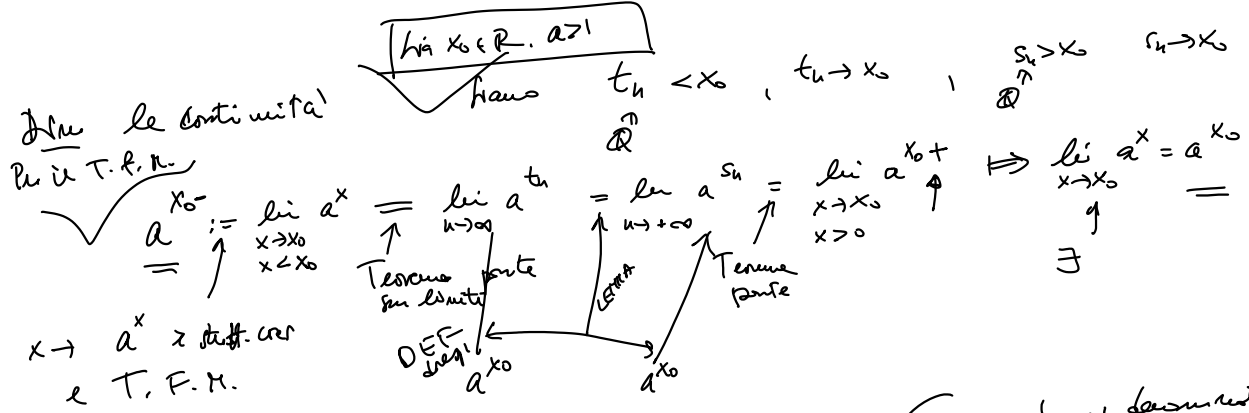 Sia x₀ ∈ ℝ. a>1
Siano tₙ < x₀ , tₙ → x₀ , sₙ > x₀ sₙ → x₀
ℚ ℚ
Dim la continuità
Per il T.F.M.
a^{x₀-} := lim_{x→x₀, x<x₀} a^x = lim_{n→∞} a^{tₙ} = lim_{n→+∞} a^{sₙ} = lim_{x→x₀, x>0} a^{x₀+} ⟹ lim_{x→x₀} a^x = a^{x₀}
∃
Teorema ponte
sui limiti
LEMMA
Teorema
ponte
x → a^x è strett. cres
e T.F.M.
DEF
a^{x₀} a^{x₀}